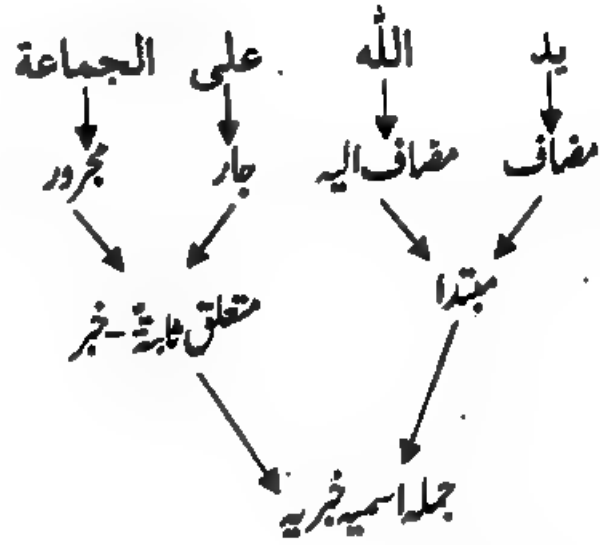 يد الله على الجماعة
مضاف مضاف اليہ جار مجرور
مبتدا
متعلق ثابتة - خبر
جملہ اسمیہ خبریہ